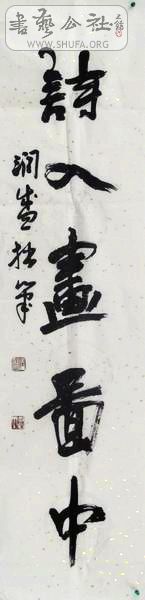 書藝公社
WWW.SHUFA.ORG
詩入畫圖中
润生拙筆